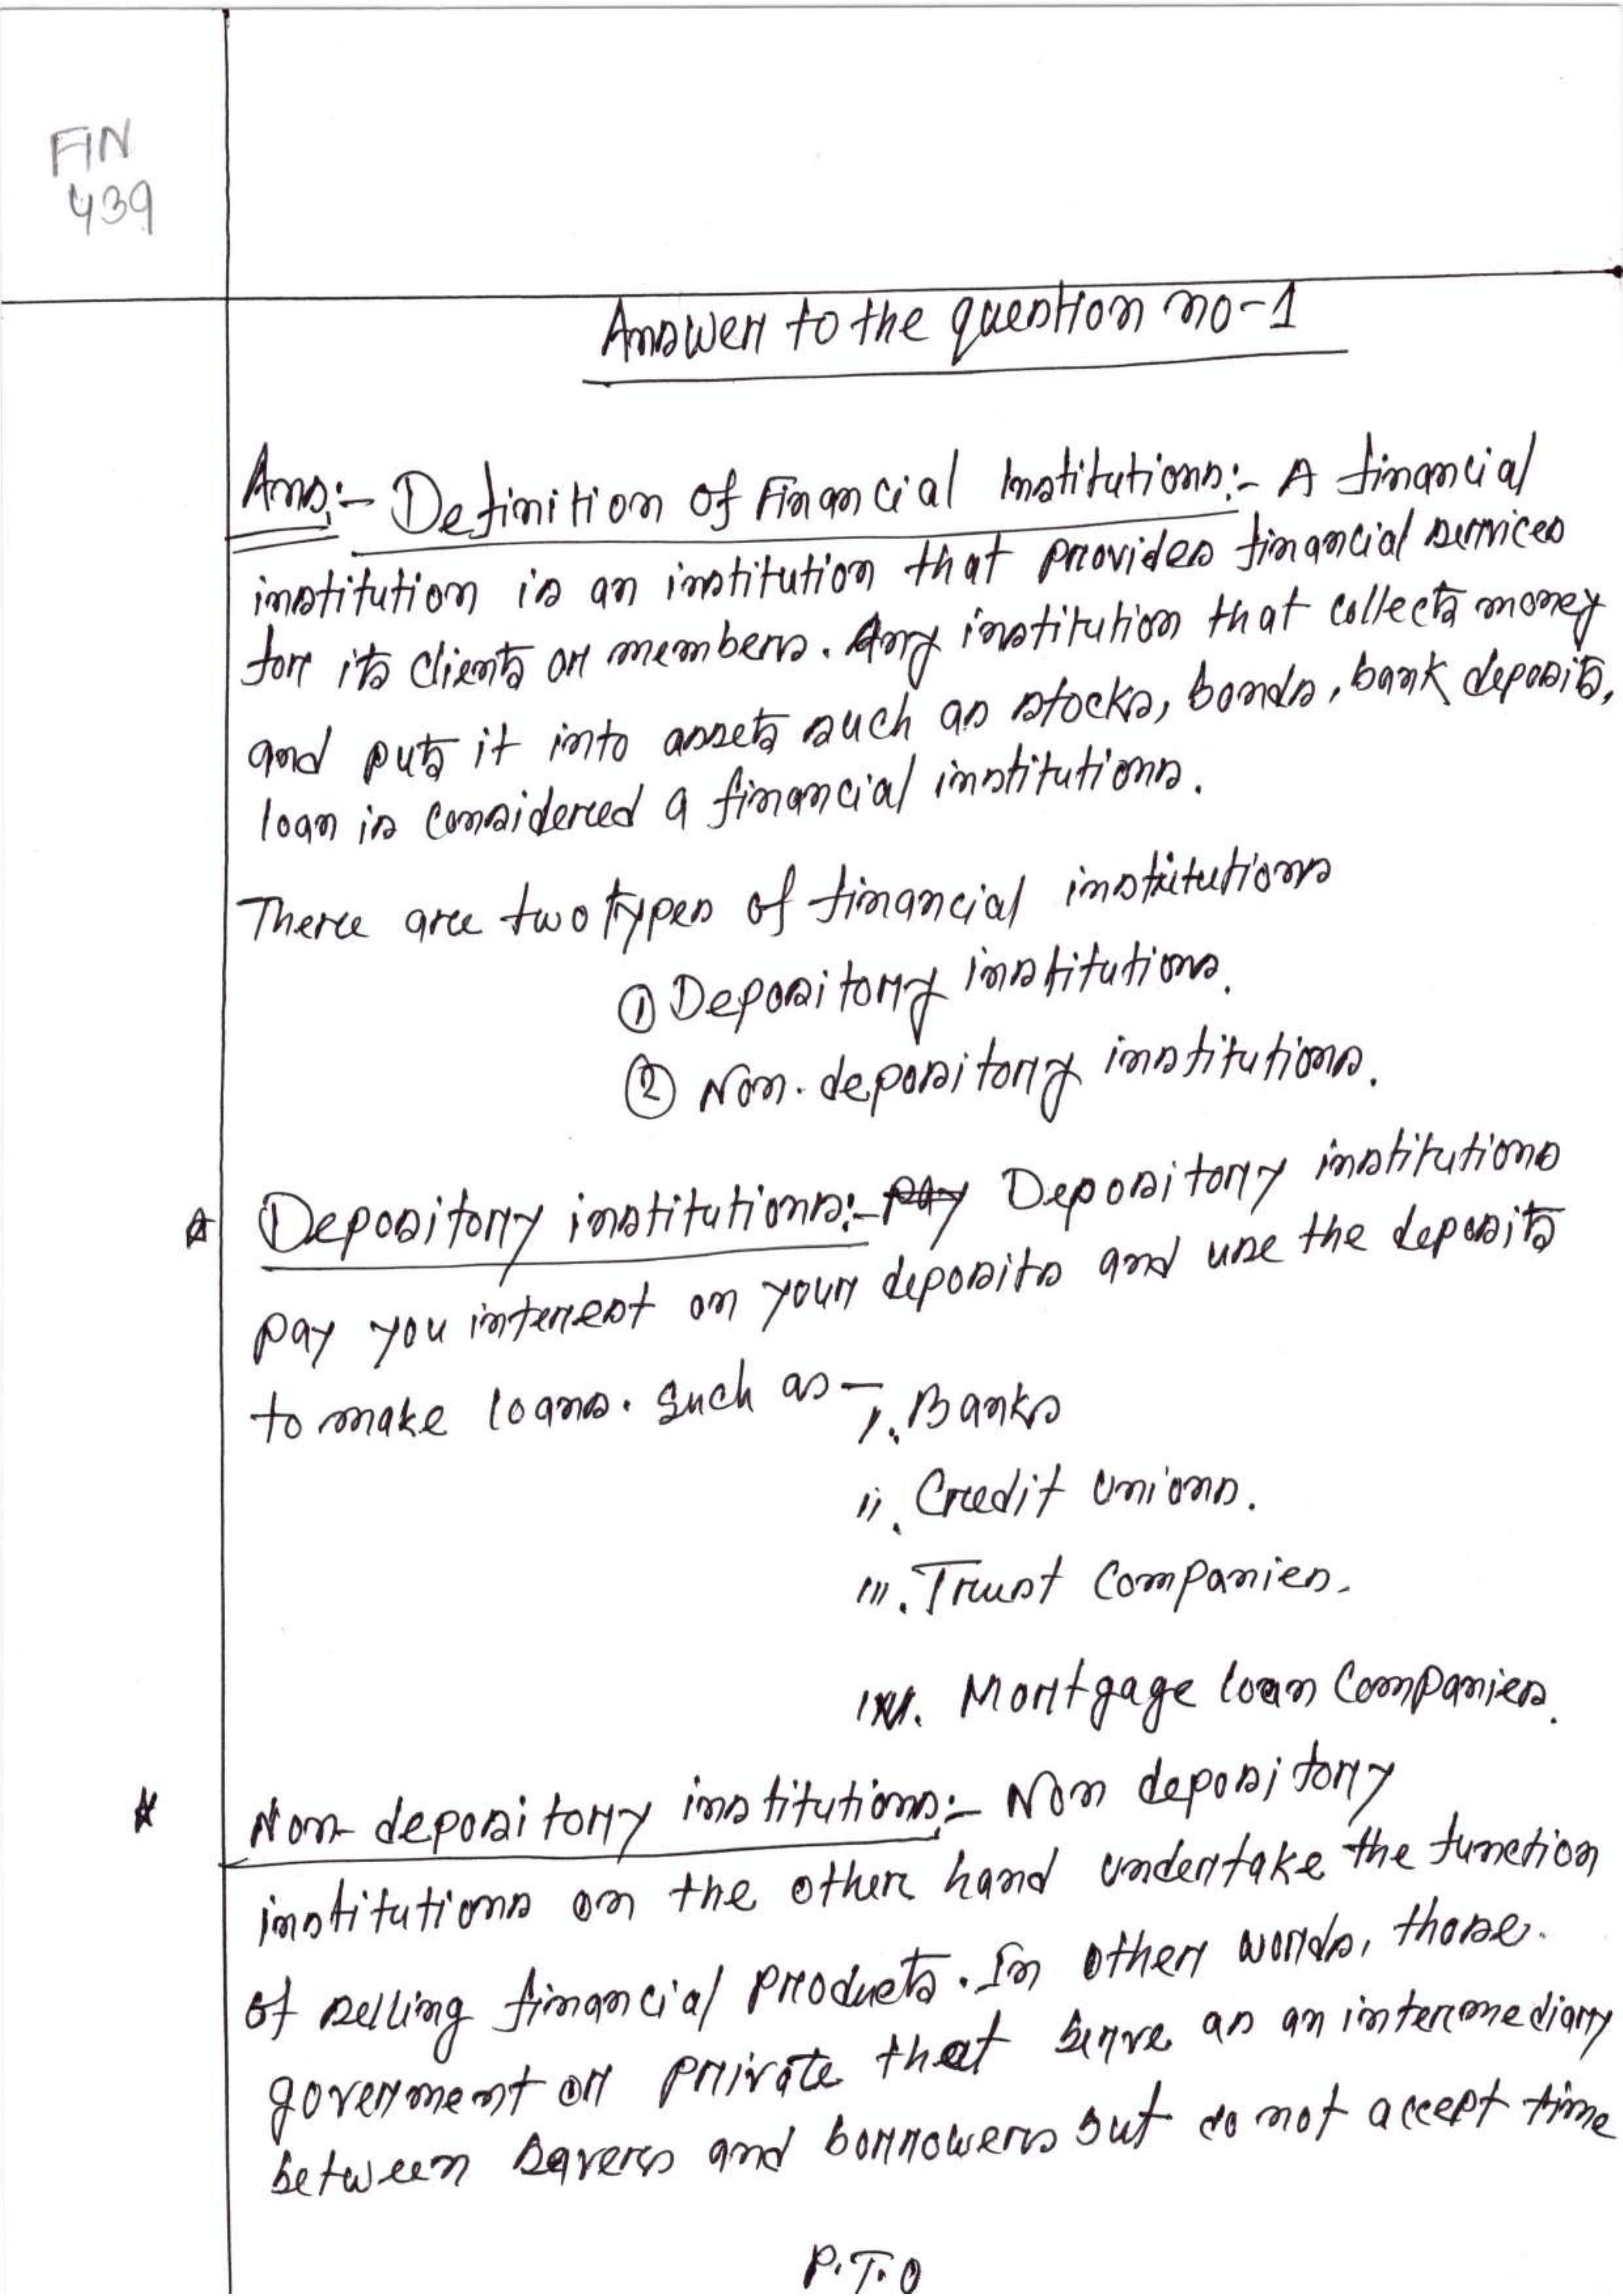 FIN
439
Answer to the question no-1
Ans:- Definition of Financial Institutions:- A financial
institution is an institution that provides financial services
for its clients or members. Any institution that collects money
and puts it into assets such as stocks, bonds, bank deposits,
loan is considered a financial institutions.
There are two types of financial institutions
① Depository institutions.
② Non-depository institutions.
☆ Depository institutions:- Pay Depository institutions
pay you interest on your deposits and use the deposits
to make loans. Such as — i. Banks
ii. Credit Unions.
iii. Trust Companies.
iv. Mortgage loan Companies.
☆ Non-depository institutions:- Non depository
institutions on the other hand undertake the function
of selling financial products. In other words, those.
goverment or private that serve as an intermediary
between savers and borrowers but do not accept time
P.T.O